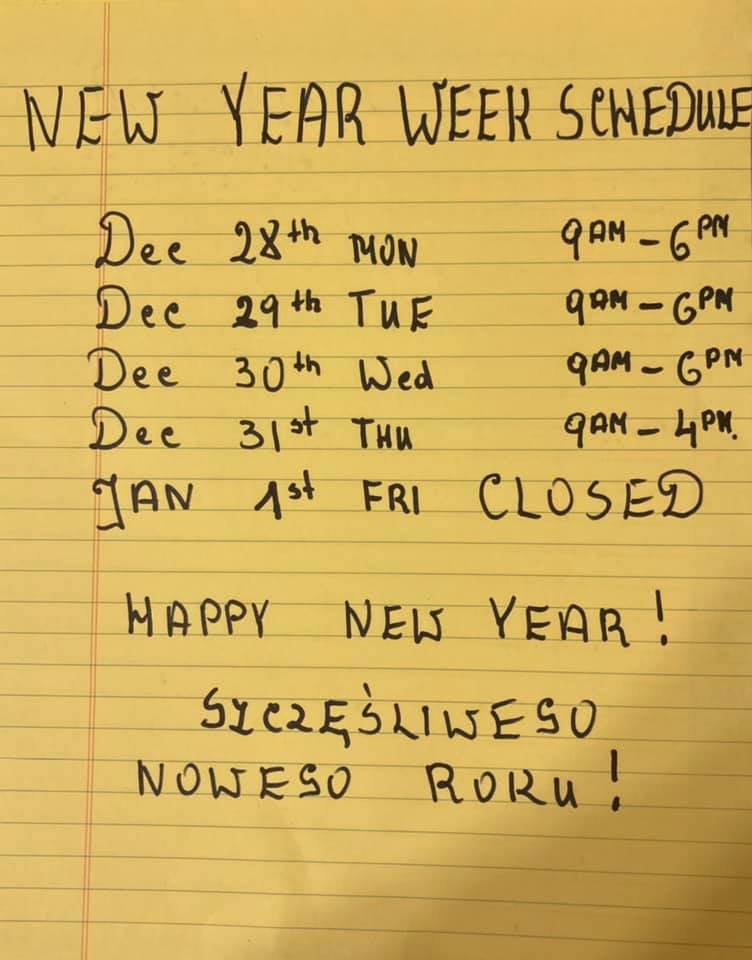 NEW YEAR WEEK SCHEDULE
Dec 28th MON 9AM - 6PM
Dec 29th TUE 9AM - 6PM
Dec 30th Wed 9AM - 6PM
Dec 31st THU 9AM - 4PM.
JAN 1st FRI CLOSED
HAPPY NEW YEAR!
SZCZĘŚLIWEGO
NOWEGO ROKU!